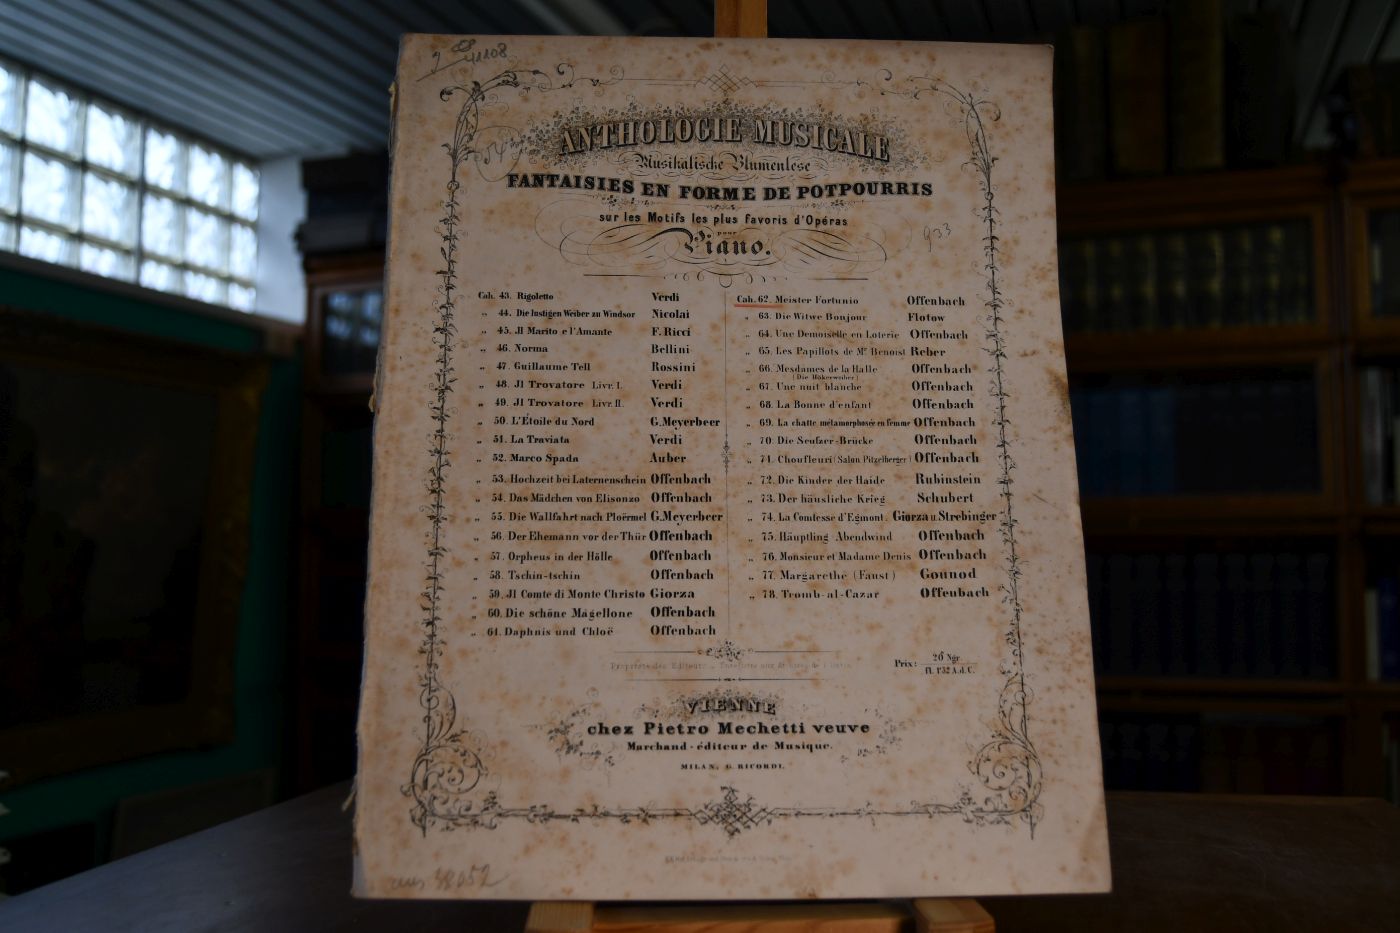 41108
ANTHOLOGIE MUSICALE
Musikalische Blumenlese
FANTAISIES EN FORME DE POTPOURRIS
sur les Motifs les plus favoris d'Opéras
pour
Piano.
933
Cah. 43. Rigoletto Verdi
„ 44. Die lustigen Weiber zu Windsor Nicolai
„ 45. Jl Marito e l'Amante F. Ricci
„ 46. Norma Bellini
„ 47. Guillaume Tell Rossini
„ 48. Jl Trovatore Livr. I. Verdi
„ 49. Jl Trovatore Livr. II. Verdi
„ 50. L'Étoile du Nord G. Meyerbeer
„ 51. La Traviata Verdi
„ 52. Marco Spada Auber
„ 53. Hochzeit bei Laternenschein Offenbach
„ 54. Das Mädchen von Elisonzo Offenbach
„ 55. Die Wallfahrt nach Ploërmel G. Meyerbeer
„ 56. Der Ehemann vor der Thür Offenbach
„ 57. Orpheus in der Hölle Offenbach
„ 58. Tschin-tschin Offenbach
„ 59. Jl Comte di Monte Christo Giorza
„ 60. Die schöne Magellone Offenbach
„ 61. Daphnis und Chloë Offenbach
Cah. 62. Meister Fortunio Offenbach
„ 63. Die Witwe Bonjour Flotow
„ 64. Une Demoiselle en Loterie Offenbach
„ 65. Les Papillots de Mr. Benoist Reber
„ 66. Mesdames de la Halle Offenbach
(Die Hökerweiber)
„ 67. Une nuit blanche Offenbach
„ 68. La Bonne d'enfant Offenbach
„ 69. La chatte métamorphosée en femme Offenbach
„ 70. Die Seufzer-Brücke Offenbach
„ 71. Choufleuri (Salon Pitzelberger) Offenbach
„ 72. Die Kinder der Haide Rubinstein
„ 73. Der häusliche Krieg Schubert
„ 74. La Comtesse d'Egmont. Giorza u. Strebinger
„ 75. Häuptling Abendwind Offenbach
„ 76. Monsieur et Madame Denis Offenbach
„ 77. Margarethe (Faust) Gounod
„ 78. Tromb-al-Cazar Offenbach
Propriété des Editeurs.
Prix: 26 Ngr.
fl. 1'32 A.d.C.
VIENNE
chez Pietro Mechetti veuve
Marchand-éditeur de Musique.
MILAN, G. RICORDI.
38052